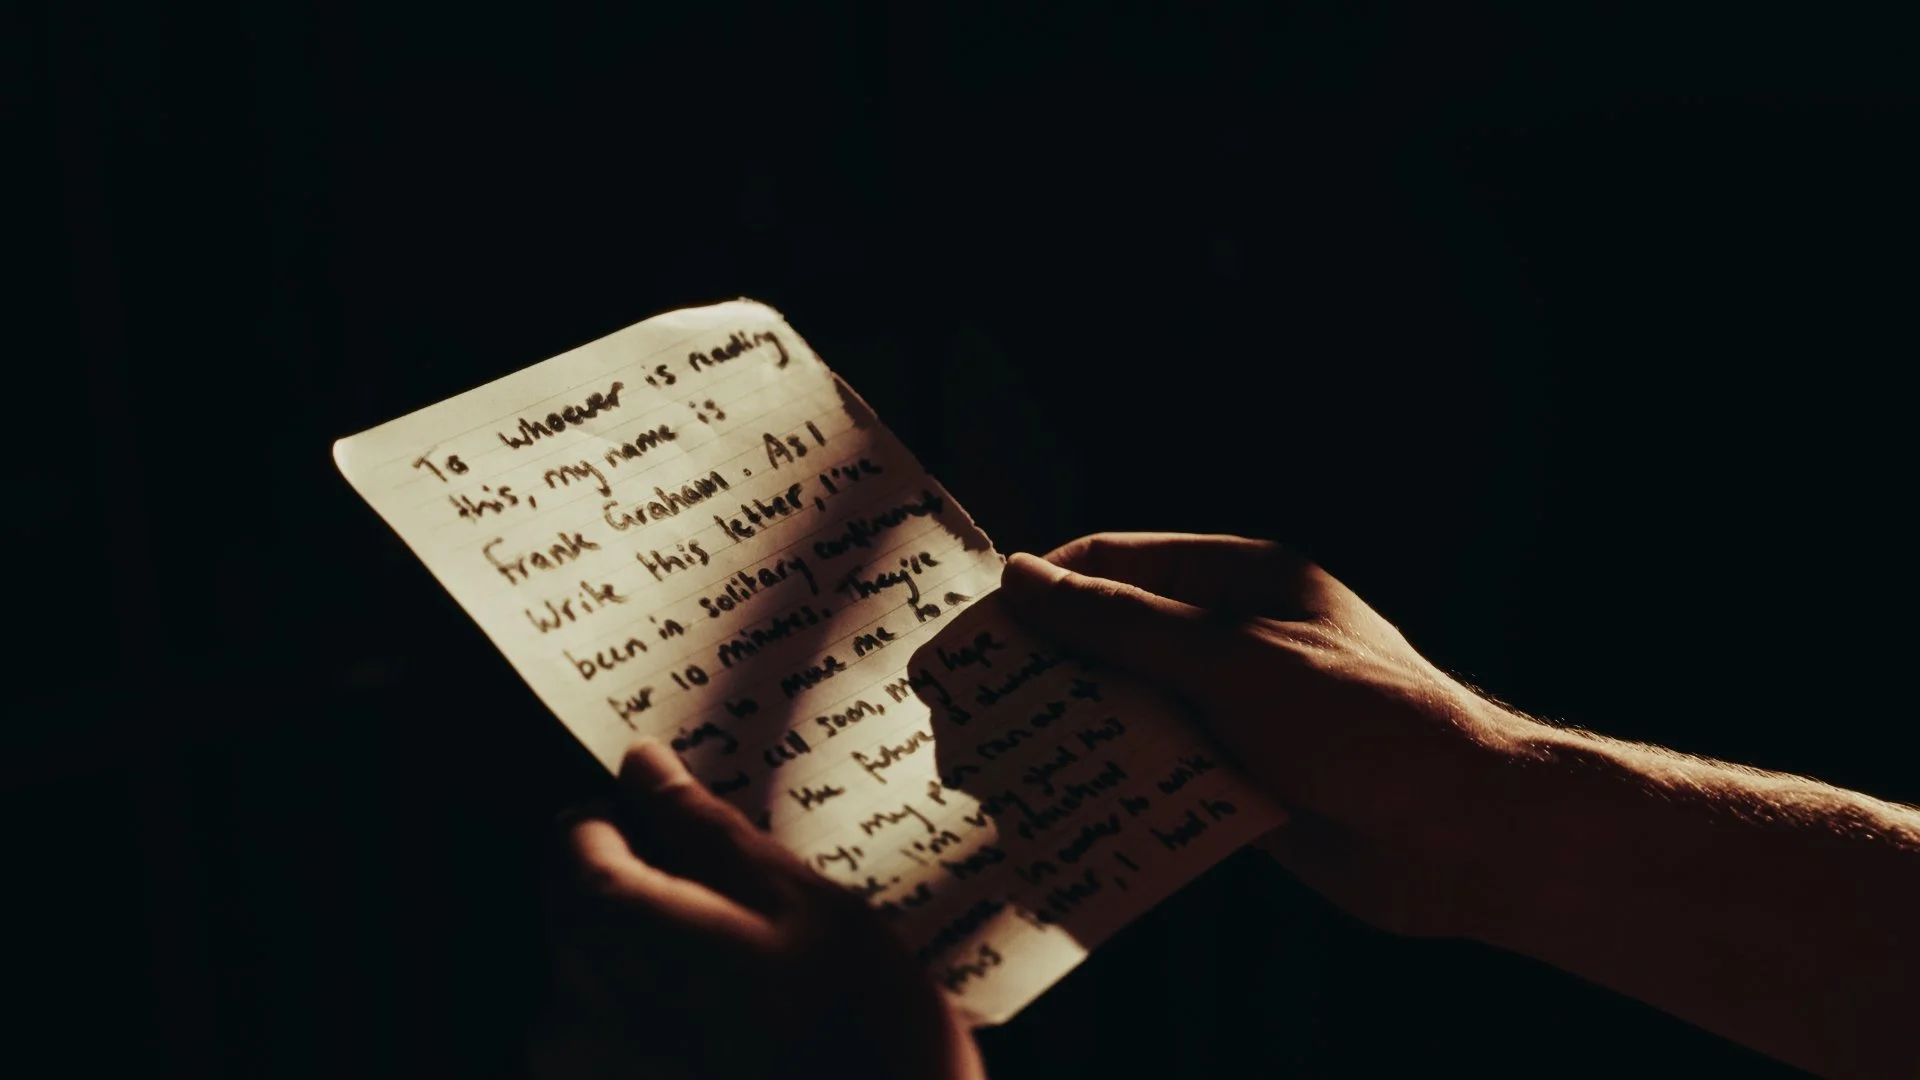 To whoever is reading
this, my name is
Frank Graham. As I
Write this letter, I've
been in solitary confinement
for 10 minutes. They're
to move me to a
cell soon, my hope
the future is
my pen ran out of
I'm very glad this
has
in order to write
this letter, I had to